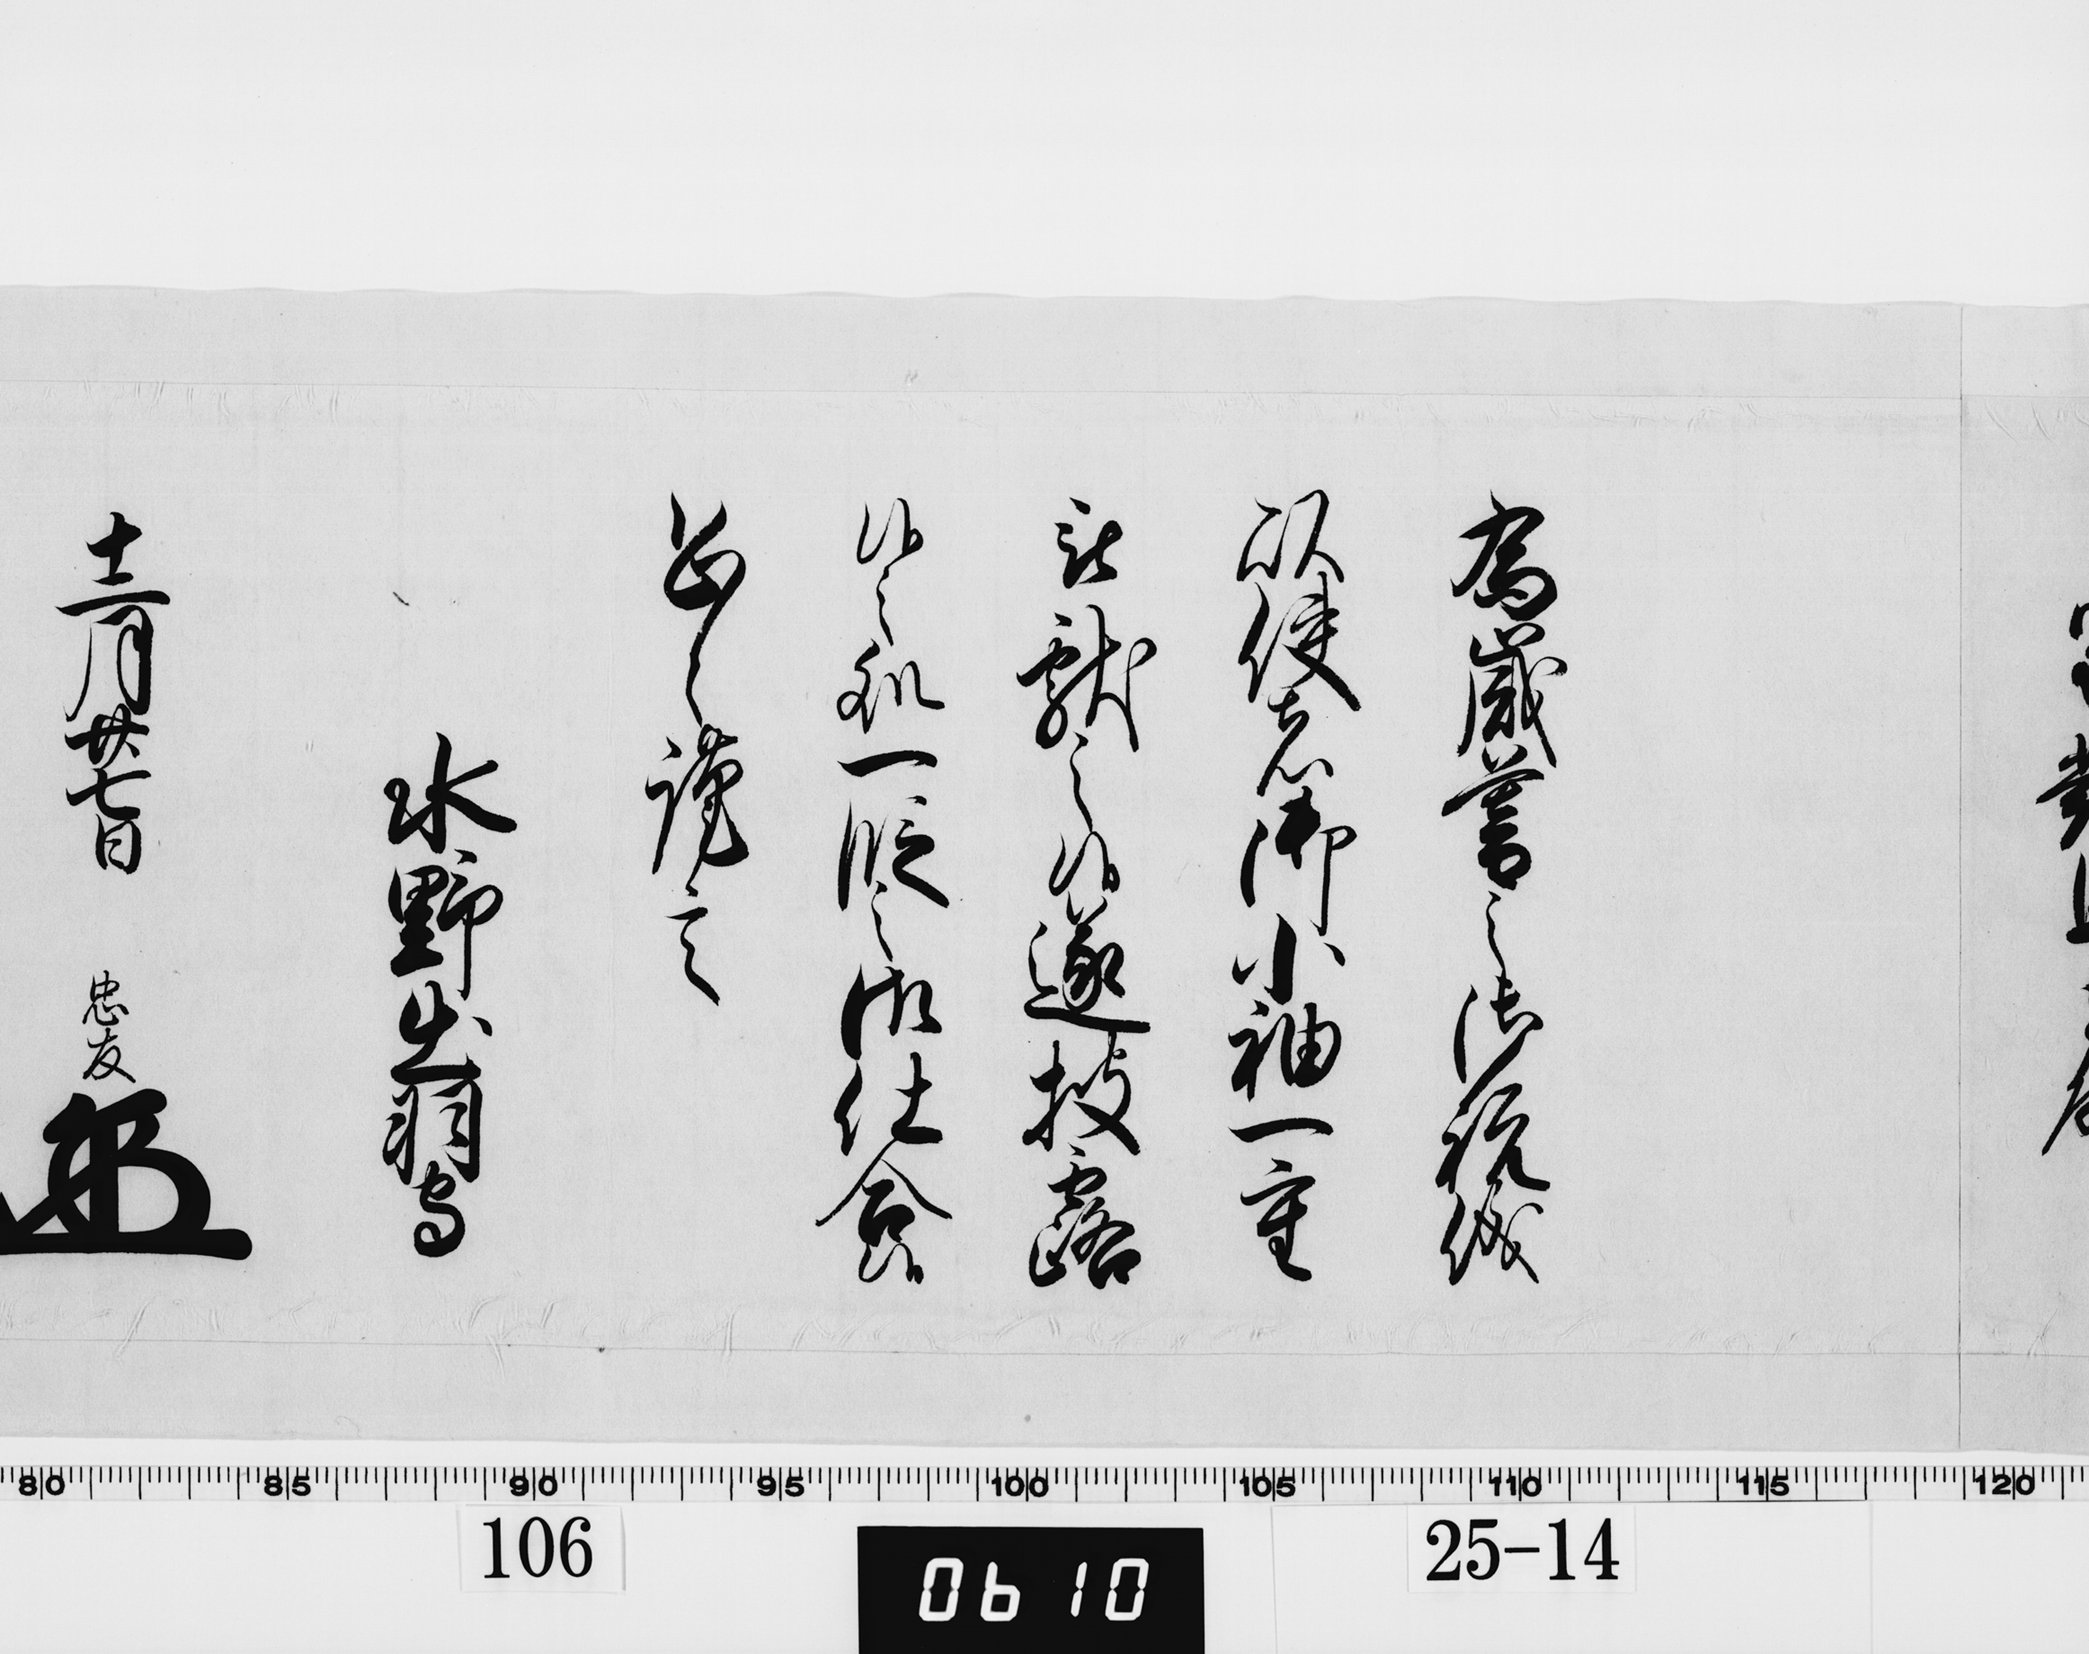 為歳暮之御祝儀
以使者御小袖一重
被献之候遂披露
候之処一段之御仕合候
恐々謹言
水野出羽守
十二月廿七日 忠友
80 85 90 95 100 105 110 115 120
106
0610
25-14